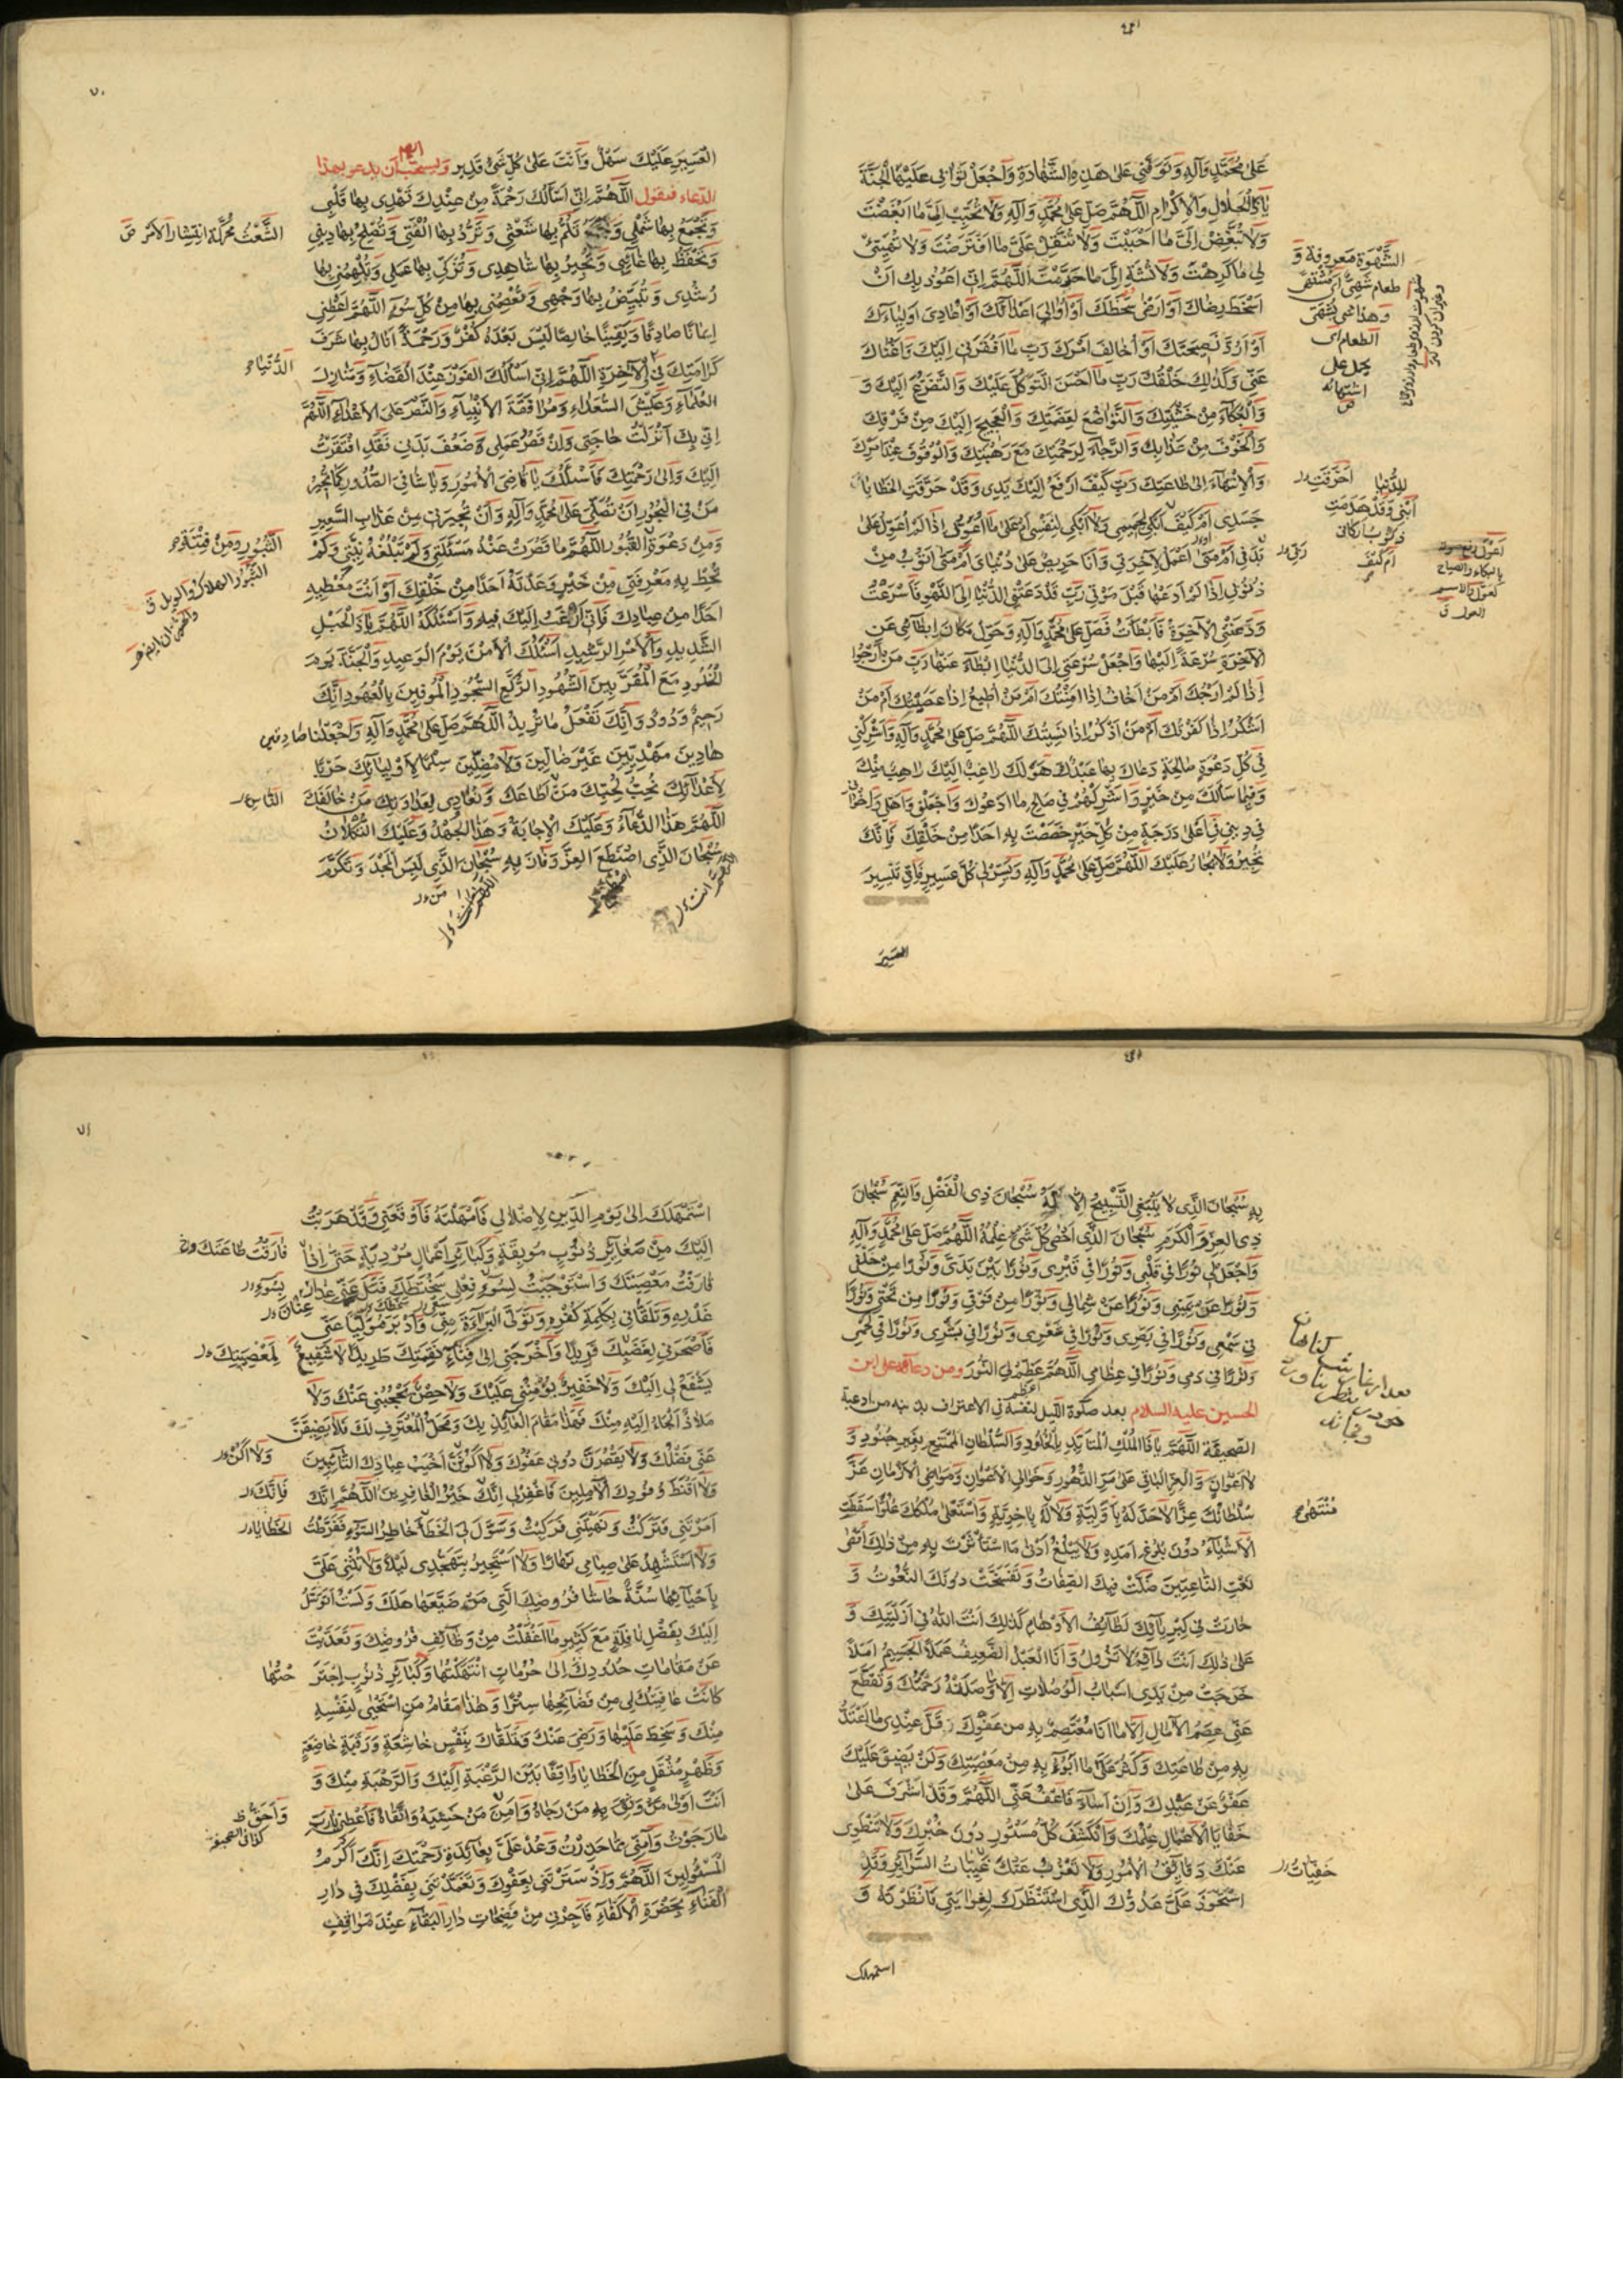 عَلىٰ مُحَمَّدٍ وَآلِهِ وَتَوَفَّنِي عَلىٰ هٰذِهِ الشَّهَادَةِ وَاجْعَلْ ثَوَابِي عَلَيْهَا الْجَنَّةَ
يَا ذَا الْجَلَالِ وَالْاِكْرَامِ اَللّٰهُمَّ صَلِّ عَلىٰ مُحَمَّدٍ وَآلِهِ وَلَا تُحَبِّبْ اِلَيَّ مَا اَبْغَضْتَ
وَلَا تُبَغِّضْ اِلَيَّ مَا اَحْبَبْتَ وَلَا تُثَقِّلْ عَلَيَّ مَا افْتَرَضْتَ وَلَا تُهَيِّئْ
لِي مَا كَرِهْتَ وَلَا تُشَهِّ اِلَيَّ مَا حَرَّمْتَ اَللّٰهُمَّ اِنِّي اَعُوذُ بِكَ اَنْ
اَسْخَطَ رِضَاكَ اَوْ اَرْضىٰ سَخَطَكَ اَوْ اُوَالِيَ اَعْدَائَكَ اَوْ اُعَادِيَ اَوْلِيَاءَكَ
اَوْ اَرُدَّ نَصِيحَتَكَ اَوْ اُخَالِفَ اَمْرَكَ رَبِّ مَا اَفْقَرَنِي اِلَيْكَ وَاَغْنَاكَ
عَنِّي وَكَذٰلِكَ خَلْقُكَ رَبِّ مَا اَحْسَنَ التَّوَكُّلَ عَلَيْكَ وَالتَّضَرُّعَ اِلَيْكَ وَ
وَالْبُكَاءَ مِنْ خَشْيَتِكَ وَالتَّوَاضُعَ لِعَظَمَتِكَ وَالْعَجِيجَ اِلَيْكَ مِنْ فَرَقِكَ
وَالْخَوْفَ مِنْ عَذَابِكَ وَالرَّجَاءَ لِرَحْمَتِكَ مَعَ رَهْبَتِكَ وَالْوُقُوفَ عِنْدَ اَمْرِكَ
وَالْاِنْتِهَاءَ اِلىٰ طَاعَتِكَ رَبِّ كَيْفَ اَرْفَعُ اِلَيْكَ يَدِي وَقَدْ حَرَّقَتِ الْخَطَايَا
جَسَدِي اَمْ كَيْفَ اَبْكِي لِحَمِيمِي وَلَا اَبْكِي لِنَفْسِي اَمْ عَلىٰ مَا اُعَوِّلُ اِذَا لَمْ اُعَوِّلْ عَلىٰ
بَدَنِي اَمْ مَتىٰ اَعْمَلُ لِآخِرَتِي وَاَنَا حَرِيصٌ عَلىٰ دُنْيَايَ اَمْ مَتىٰ اَتُوبُ مِنْ
ذُنُوبِي اِذَا لَمْ اَدَعْهَا قَبْلَ مَوْتِي رَبِّ قَدْ دَعَتْنِي الدُّنْيَا اِلَى اللَّهْوِ فَاَسْرَعْتُ
وَدَعَتْنِي الْآخِرَةُ فَاَبْطَأْتُ فَصَلِّ عَلىٰ مُحَمَّدٍ وَآلِهِ وَحَوِّلْ مَكَانَ اِبْطَائِي عَنِ
الْآخِرَةِ سُرْعَةً اِلَيْهَا وَاجْعَلْ سُرْعَتِي اِلَى الدُّنْيَا اِبْطَاءً عَنْهَا رَبِّ مَنْ اَرْجُوا
اِذَا لَمْ اَرْجُكَ اَمْ مَنْ اَخَافُ اِذَا اَمِنْتُكَ اَمْ مَنْ اُطِيعُ اِذَا عَصَيْتُكَ اَمْ مَنْ
اَشْكُرُ اِذَا كَفَرْتُكَ اَمْ مَنْ اَذْكُرُ اِذَا نَسِيتُكَ اَللّٰهُمَّ صَلِّ عَلىٰ مُحَمَّدٍ وَآلِهِ وَاَشْرِكْنِي
فِي كُلِّ دَعْوَةٍ صَالِحَةٍ دَعَاكَ بِهَا عَبْدٌ هُوَ لَكَ رَاغِبٌ اِلَيْكَ رَاهِبٌ مِنْكَ
وَفِيمَا سَأَلَكَ مِنْ خَيْرٍ وَاَشْرِكْهُمْ فِي صَالِحِ مَا اَدْعُوكَ وَاجْعَلْنِي وَاَهْلِي وَاِخْوَانِي
فِي دِينِي فِي اَعْلىٰ دَرَجَةٍ مِنْ كُلِّ خَيْرٍ خَصَصْتَ بِهِ اَحَدًا مِنْ خَلْقِكَ فَاِنَّكَ
تُجِيرُ وَلَا يُجَارُ عَلَيْكَ اَللّٰهُمَّ صَلِّ عَلىٰ مُحَمَّدٍ وَآلِهِ وَيَسِّرْ لِي كُلَّ عَسِيرٍ فَاِنَّ تَيْسِيرَ
العَسِيرَ
الشَّهْوَة مَعروفة وَ
طعام شَهِيٌّ اَى مُشْتَهى
وهذا شى يُشَهّى
الطعام اى
يحمل على
اشتهائه
ص
اَمْ كَيْفَ
اعول رفع صوته
بالبكاء والصياح
العول ق
الْعَسِيرِ عَلَيْكَ سَهْلٌ وَاَنْتَ عَلىٰ كُلِّ شَيْءٍ قَدِير ويستحب ان يدعو بهذا
الدعاء فيقول اَللّٰهُمَّ اِنِّي اَسْأَلُكَ رَحْمَةً مِنْ عِنْدِكَ تَهْدِي بِهَا قَلْبِي
وَتَجْمَعُ بِهَا شَمْلِي وَتَلُمُّ بِهَا شَعْثِي وَتَرُدُّ بِهَا اُلْفَتِي وَتُصْلِحُ بِهَا دِينِي
وَتَحْفَظُ بِهَا غَائِبِي وَتُجِيرُ بِهَا شَاهِدِي وَتُزَكِّي بِهَا عَمَلِي وَتُلْهِمُنِي بِهَا
رُشْدِي وَتُبَيِّضُ بِهَا وَجْهِي وَتَعْصِمُنِي بِهَا مِنْ كُلِّ سُوءٍ اَللّٰهُمَّ اَعْطِنِي
اِيمَانًا صَادِقًا وَيَقِينًا خَالِصًا لَيْسَ بَعْدَهُ كُفْرٌ وَرَحْمَةً اَنَالُ بِهَا شَرَفَ
كَرَامَتِكَ فِي الْآخِرَةِ اَللّٰهُمَّ اِنِّي اَسْأَلُكَ الْفَوْزَ عِنْدَ الْقَضَاءِ وَمَنَازِلَ
الْعُلَمَاءِ وَعَيْشَ السُّعَدَاءِ وَمُرَافَقَةَ الْاَنْبِيَاءِ وَالنَّصْرَ عَلَى الْاَعْدَاءِ اَللّٰهُمَّ
اِنِّي بِكَ اَنْزَلْتُ حَاجَتِي وَاِنْ قَصُرَ عَمَلِي وَضَعُفَ بَدَنِي فَقَدِ افْتَقَرْتُ
اِلَيْكَ وَاِلىٰ رَحْمَتِكَ فَاَسْئَلُكَ يَا قَاضِيَ الْاُمُورِ وَيَا شَافِيَ الصُّدُورِ كَمَا تُجِيرُ
مَنْ فِي الْبُحُورِ اَنْ تُصَلِّيَ عَلىٰ مُحَمَّدٍ وَآلِهِ وَاَنْ تُجِيرَنِي مِنْ عَذَابِ السَّعِيرِ
وَمِنْ دَعْوَةِ الثُّبُورِ اَللّٰهُمَّ مَا قَصُرَتْ عَنْهُ مَسْئَلَتِي وَلَمْ تَبْلُغْهُ نِيَّتِي وَلَمْ
تُحِطْ بِهِ مَعْرِفَتِي مِنْ خَيْرٍ وَعَدْتَهُ اَحَدًا مِنْ خَلْقِكَ اَوْ اَنْتَ مُعْطِيهِ
اَحَدًا مِنْ عِبَادِكَ فَاِنِّي اَرْغَبُ اِلَيْكَ فِيهِ وَاَسْئَلُكَهُ اَللّٰهُمَّ يَا ذَا الْحَبْلِ
الشَّدِيدِ وَالْاَمْرِ الرَّشِيدِ اَسْئَلُكَ الْاَمْنَ يَوْمَ الْوَعِيدِ وَالْجَنَّةَ يَوْمَ
الْخُلُودِ مَعَ الْمُقَرَّبِينَ الشُّهُودِ الرُّكَّعِ السُّجُودِ الْمُوفِينَ بِالْعُهُودِ اِنَّكَ
رَحِيمٌ وَدُودٌ وَاَنَّكَ تَفْعَلُ مَا تُرِيدُ اَللّٰهُمَّ صَلِّ عَلىٰ مُحَمَّدٍ وَآلِهِ وَاجْعَلْنَا صَادِقِينَ
هَادِينَ مَهْدِيِّينَ غَيْرَ ضَالِّينَ وَلَا مُضِلِّينَ سِلْمًا لِاَوْلِيَائِكَ حَرْبًا
لِاَعْدَائِكَ نُحِبُّ لِحُبِّكَ مَنْ اَطَاعَكَ وَنُعَادِي لِعَدَاوَتِكَ مَنْ خَالَفَكَ
اَللّٰهُمَّ هٰذَا الدُّعَاءُ وَعَلَيْكَ الْاِجَابَةُ وَهٰذَا الْجُهْدُ وَعَلَيْكَ التُّكْلَانُ
سُبْحَانَ الَّذِي اصْطَنَعَ الْعِزَّ وَفَازَ بِهِ سُبْحَانَ الَّذِي لَبِسَ الْمَجْدَ وَتَكَرَّمَ
الشَّعَثُ مُحَرَّكَة انتِشار الاَمْر ق
الدُّنْيَا وَ
الثُّبُورِ وَمِنْ فِتْنَةِ
الثُّبُور الهلاك والويل ق
بِهِ سُبْحَانَ الَّذِي لَا يَنْبَغِي التَّسْبِيحُ اِلَّا لَهُ سُبْحَانَ ذِي الْفَضْلِ وَالنِّعَمِ سُبْحَانَ
ذِي الْعِزِّ وَالْكَرَمِ سُبْحَانَ الَّذِي اَحْصىٰ كُلَّ شَيْءٍ عِلْمُهُ اَللّٰهُمَّ صَلِّ عَلىٰ مُحَمَّدٍ وَآلِهِ
وَاجْعَلْ لِي نُورًا فِي قَلْبِي وَنُورًا فِي قَبْرِي وَنُورًا بَيْنَ يَدَيَّ وَنُورًا مِنْ خَلْفِي
وَنُورًا عَنْ يَمِينِي وَنُورًا عَنْ شِمَالِي وَنُورًا مِنْ فَوْقِي وَنُورًا مِنْ تَحْتِي وَنُورًا
فِي سَمْعِي وَنُورًا فِي بَصَرِي وَنُورًا فِي شَعْرِي وَنُورًا فِي بَشَرِي وَنُورًا فِي لَحْمِي
وَنُورًا فِي دَمِي وَنُورًا فِي عِظَامِي اَللّٰهُمَّ عَظِّمْ لِيَ النُّورَ ومن دعائه على ابن
الحسين عليه السلام بعد صلوة الليل لنفسه في الاعتراف بذنبه من ادعية
الصحيفة اَللّٰهُمَّ يَا ذَا الْمُلْكِ الْمُتَأَبِّدِ بِالْخُلُودِ وَالسُّلْطَانِ الْمُمْتَنِعِ بِغَيْرِ جُنُودٍ وَ
لَا اَعْوَانٍ وَالْعِزِّ الْبَاقِي عَلىٰ مَرِّ الدُّهُورِ وَخَوَالِي الْاَعْوَامِ وَمَوَاضِي الْاَزْمَانِ عَزَّ
سُلْطَانُكَ عِزًّا لَا حَدَّ لَهُ بِاَوَّلِيَّةٍ وَلَا لَهُ بِآخِرِيَّةٍ وَاسْتَعْلىٰ مُلْكُكَ عُلُوًّا سَقَطَتِ
الْاَشْيَاءُ دُونَ بُلُوغِ اَمَدِهِ وَلَا يَبْلُغُ اَدْنىٰ مَا اسْتَأْثَرْتَ بِهِ مِنْ ذٰلِكَ اَقْصىٰ
نَعْتِ النَّاعِتِينَ ضَلَّتْ فِيكَ الصِّفَاتُ وَتَفَسَّخَتْ دُونَكَ النُّعُوتُ وَ
حَارَتْ فِي كِبْرِيَائِكَ لَطَائِفُ الْاَوْهَامِ كَذٰلِكَ اَنْتَ اللّٰهُ فِي اَزَلِيَّتِكَ وَ
عَلىٰ ذٰلِكَ اَنْتَ دَائِمٌ لَا تَزُولُ وَاَنَا الْعَبْدُ الضَّعِيفُ عَمَلًا الْجَسِيمُ اَمَلًا
خَرَجَتْ مِنْ يَدِي اَسْبَابُ الْوُصُلَاتِ اِلَّا مَا وَصَلَهُ رَحْمَتُكَ وَتَقَطَّعَ
عَنِّي عِصَمُ الْآمَالِ اِلَّا مَا اَنَا مُعْتَصِمٌ بِهِ مِنْ عَفْوِكَ قَلَّ عِنْدِي مَا اَعْتَدُّ
بِهِ مِنْ طَاعَتِكَ وَكَثُرَ عَلَيَّ مَا اَبُوءُ بِهِ مِنْ مَعْصِيَتِكَ وَلَنْ يَضِيقَ عَلَيْكَ
عَفْوٌ عَنْ عَبْدِكَ وَاِنْ اَسَاءَ فَاعْفُ عَنِّي اَللّٰهُمَّ وَقَدْ اَشْرَفَ عَلىٰ
خَفَايَا الْاَعْمَالِ عِلْمُكَ وَانْكَشَفَ كُلُّ مَسْتُورٍ دُونَ خُبْرِكَ وَلَا تَنْطَوِي
عَنْكَ دَقَائِقُ الْاُمُورِ وَلَا تَعْزُبُ عَنْكَ غَيِّبَاتُ السَّرَائِرِ وَقَدِ
اسْتَحْوَذَ عَلَيَّ عَدُوُّكَ الَّذِي اسْتَنْظَرَكَ لِغَوَايَتِي فَاَنْظَرْتَهُ وَ
استمهلك
مُنْتَهىٰ
خَفِيَّاتُ
اسْتَمْهَلَكَ اِلىٰ يَوْمِ الدِّينِ لِاِضْلَالِي فَاَمْهَلْتَهُ فَاَوْقَعَنِي وَقَدْ هَرَبْتُ
اِلَيْكَ مِنْ صَغَائِرِ ذُنُوبٍ مُوبِقَةٍ وَكَبَائِرِ اَعْمَالٍ مُرْدِيَةٍ حَتّىٰ اِذَا
قَارَفْتُ مَعْصِيَتَكَ وَاسْتَوْجَبْتُ لِسُوءِ فِعْلِي سَخْطَتَكَ فَتَلَ عَنِّي عِذَارَ
غَدْرِهِ وَتَلَقَّانِي بِكَلِمَةِ كُفْرِهِ وَتَوَلَّى الْبَرَاءَةَ مِنِّي وَاَدْبَرَ مُوَلِّيًا عَنِّي
فَاَصْحَرَنِي لِغَضَبِكَ فَرِيدًا وَاَخْرَجَنِي اِلىٰ فِنَاءِ نَقِمَتِكَ طَرِيدًا لَا شَفِيعٌ
يَشْفَعُ لِي اِلَيْكَ وَلَا خَفِيرٌ يُؤْمِنُنِي عَلَيْكَ وَلَا حِصْنٌ يَحْجُبُنِي عَنْكَ وَلَا
مَلَاذٌ اَلْجَأُ اِلَيْهِ مِنْكَ فَهٰذَا مَقَامُ الْعَائِذِ بِكَ وَمَحَلُّ الْمُعْتَرِفِ لَكَ فَلَا يَضِيقَنَّ
عَنِّي فَضْلُكَ وَلَا يَقْصُرَنَّ دُونِي عَفْوُكَ وَلَا اَكُونَنَّ اَخْيَبَ عِبَادِكَ التَّائِبِينَ
وَلَا اَقْنَطَ وُفُودِكَ الْآمِلِينَ فَاغْفِرْ لِي اِنَّكَ خَيْرُ الْغَافِرِينَ اَللّٰهُمَّ اِنَّكَ
اَمَرْتَنِي فَتَرَكْتُ وَنَهَيْتَنِي فَرَكِبْتُ وَسَوَّلَ لِيَ الْخَطَأَ خَاطِرُ السُّوءِ فَفَرَّطْتُ
وَلَا اَسْتَشْهِدُ عَلىٰ صِيَامِي نَهَارًا وَلَا اَسْتَجِيرُ بِتَهَجُّدِي لَيْلًا وَلَا تُثْنِي عَلَيَّ
بِاِحْيَائِهَا سُنَّةٌ حَاشَا فُرُوضِكَ الَّتِي مَنْ ضَيَّعَهَا هَلَكَ وَلَسْتُ اَتَوَسَّلُ
اِلَيْكَ بِفَضْلِ نَافِلَةٍ مَعَ كَثِيرِ مَا اَغْفَلْتُ مِنْ وَظَائِفِ فُرُوضِكَ وَتَعَدَّيْتُ
عَنْ مَقَامَاتِ حُدُودِكَ اِلىٰ حُرُمَاتٍ انْتَهَكْتُهَا وَكَبَائِرِ ذُنُوبٍ اجْتَرَحْتُهَا
كَانَتْ عَافِيَتُكَ لِي مِنْ فَضَائِحِهَا سِتْرًا وَهٰذَا مَقَامُ مَنِ اسْتَحْيىٰ لِنَفْسِهِ
مِنْكَ وَسَخِطَ عَلَيْهَا وَرَضِيَ عَنْكَ وَتَلَقَّاكَ بِنَفْسٍ خَاشِعَةٍ وَرَقَبَةٍ خَاضِعَةٍ
وَظَهْرٍ مُثْقَلٍ مِنَ الْخَطَايَا وَاقِفًا بَيْنَ الرَّغْبَةِ اِلَيْكَ وَالرَّهْبَةِ مِنْكَ وَ
اَنْتَ اَوْلىٰ مَنْ وَثِقَ بِهِ مَنْ رَجَاهُ وَآمَنُ مَنْ خَشِيَهُ وَاتَّقَاهُ فَاَعْطِنِي يَا رَبِّ
مَا رَجَوْتُ وَآمِنِّي مَا حَذِرْتُ وَعُدْ عَلَيَّ بِعَائِدَةِ رَحْمَتِكَ اِنَّكَ اَكْرَمُ
الْمَسْئُولِينَ اَللّٰهُمَّ وَاِذْ سَتَرْتَنِي بِعَفْوِكَ وَتَغَمَّدْتَنِي بِفَضْلِكَ فِي دَارِ
الْفَنَاءِ بِحَضْرَةِ الْاَكْفَاءِ فَاَجِرْنِي مِنْ فَضِيحَاتِ دَارِ الْبَقَاءِ عِنْدَ مَوَاقِفِ
فَارَقْتُ طَاعَتَكَ وَ
عِنَانَ
لِمَعْصِيَتِكَ
وَلَا اَكُنْ
فَاِنَّكَ
الْخَطَايَا
وَاَحَقُّ